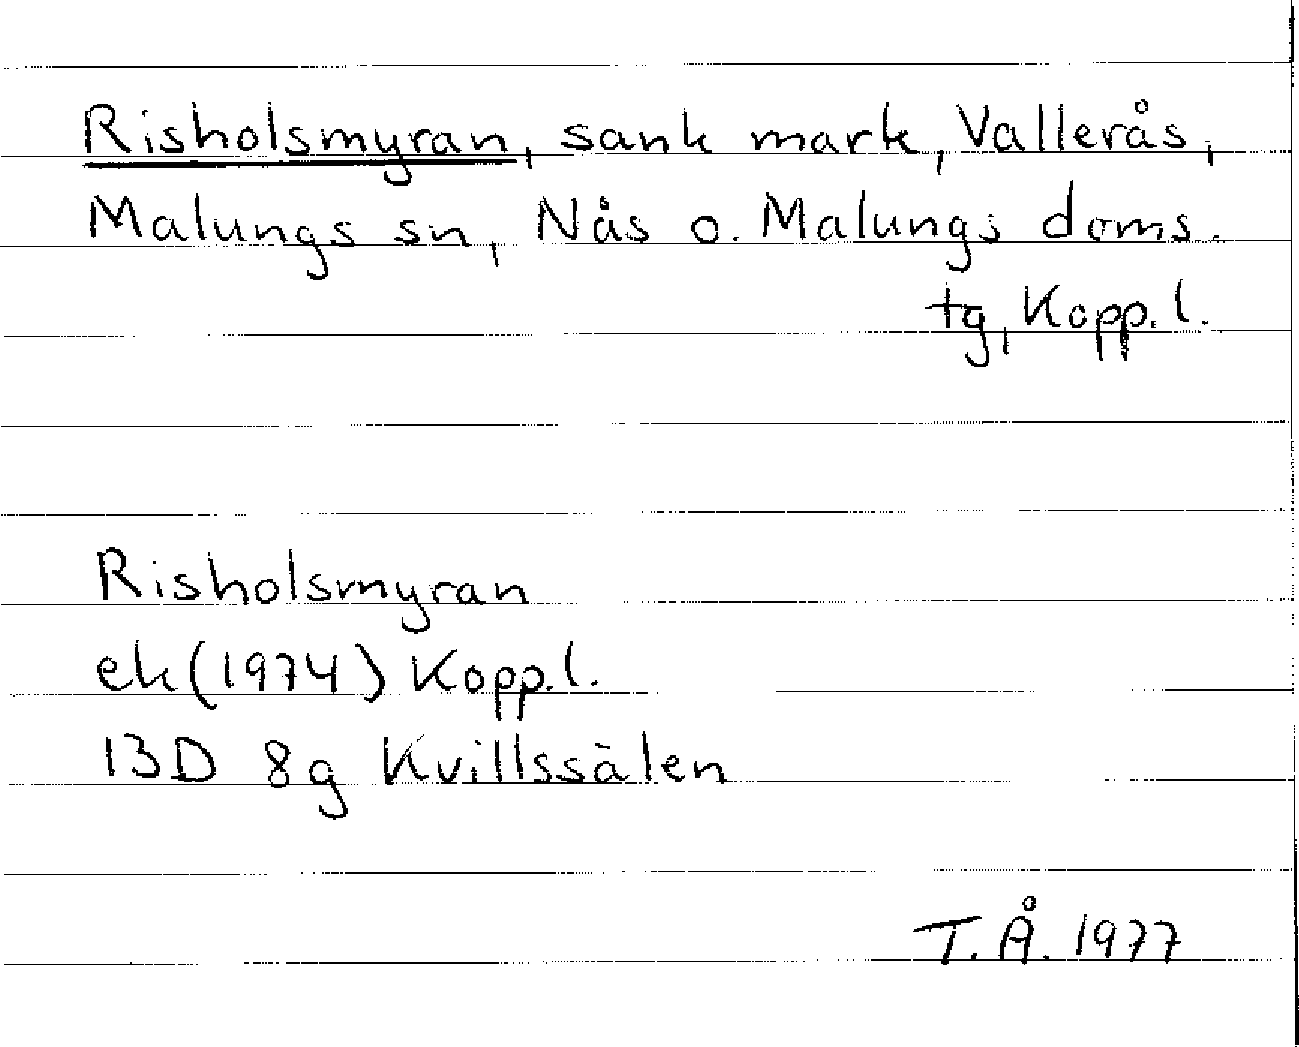 Risholsmyran, sank mark, Vallerås,
Malungs sn, Nås o. Malungs doms.
tg, Kopp. l.
Risholsmyran
ek (1974) Kopp. l.
13D 8g Kvillssälen
T. Å. 1977